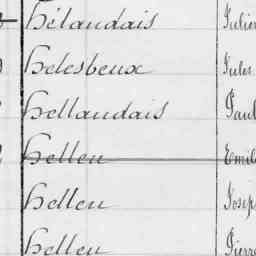 Hélaudais Julien
Helesbeux Jules
Hellaudais Paul
Helleu Emile
Helleu Joseph
Helleu Pierre